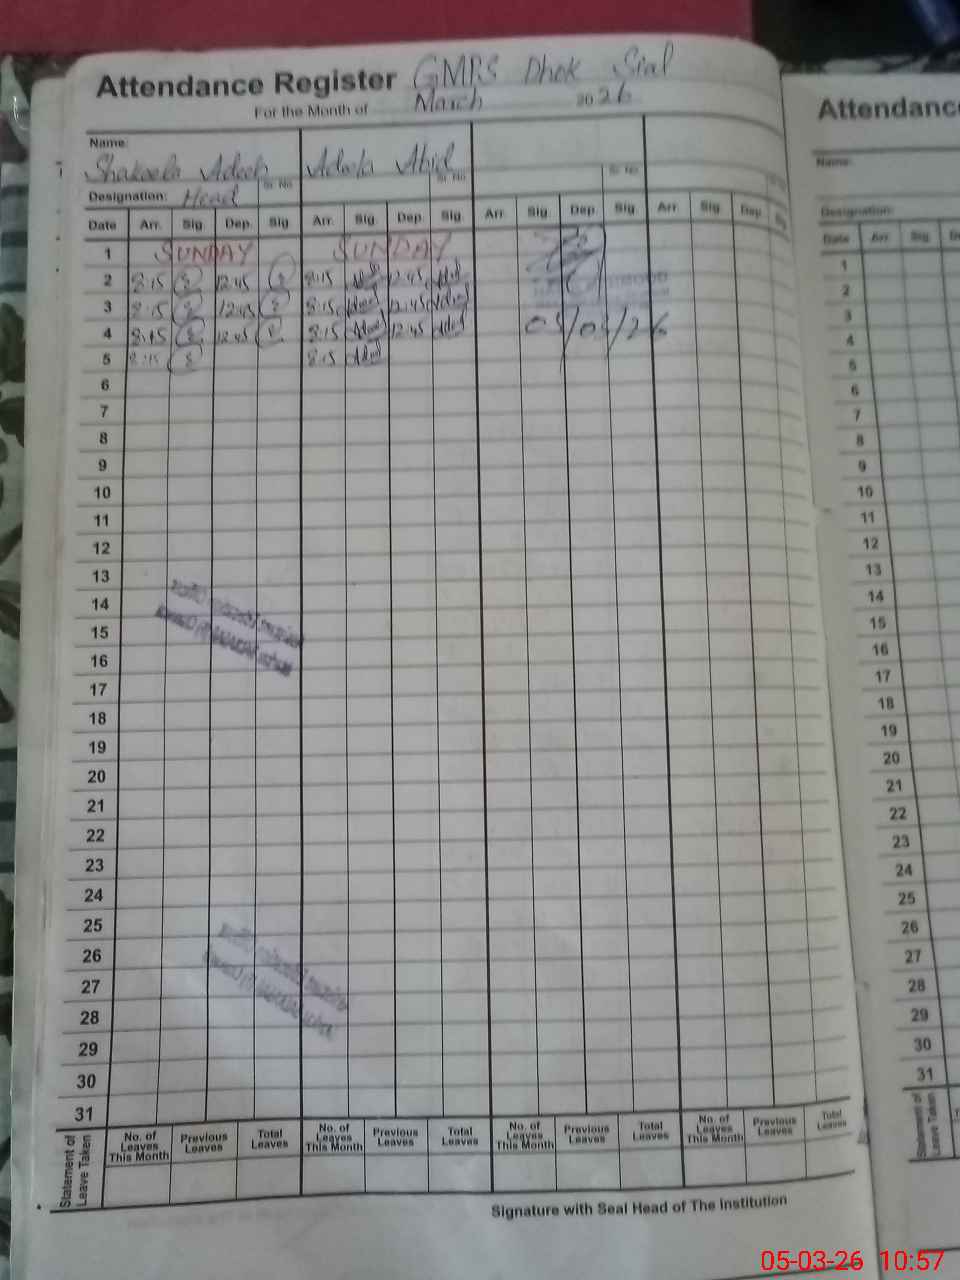 Attendance Register GMPS Dhok Sial
For the Month of March 2026
Name:
Shakeela Adeeb Adeela Abid
Sr. No. Sr. No. Sr. No.
Designation: Head
Date Arr. Sig Dep. Sig Arr. Sig. Dep. Sig. Arr. Sig Dep. Sig. Arr. Sig. Dep. Sig
1 SUNDAY SUNDAY
2 8:15 12:45 8:15 12:45
3 8:15 12:45 8:15 12:45
4 8:15 12:45 8:15 12:45 05/03/26
5 8:15 8:15
6
7
8
9
10
11
12
13
14
15
16
17
18
19
20
21
22
23
24
25
26
27
28
29
30
31
Statement of Leave Taken
No. of Leaves This Month Previous Leaves Total Leaves No. of Leaves This Month Previous Leaves Total Leaves No. of Leaves This Month Previous Leaves Total Leaves No. of Leaves This Month Previous Leaves Total Leaves
Signature with Seal Head of The Institution
Attendance
Name:
Designation:
Date Arr. Sig. Dep.
1
2
3
4
5
6
7
8
9
10
11
12
13
14
15
16
17
18
19
20
21
22
23
24
25
26
27
28
29
30
31
Statement of Leave Taken
05-03-26 10:57